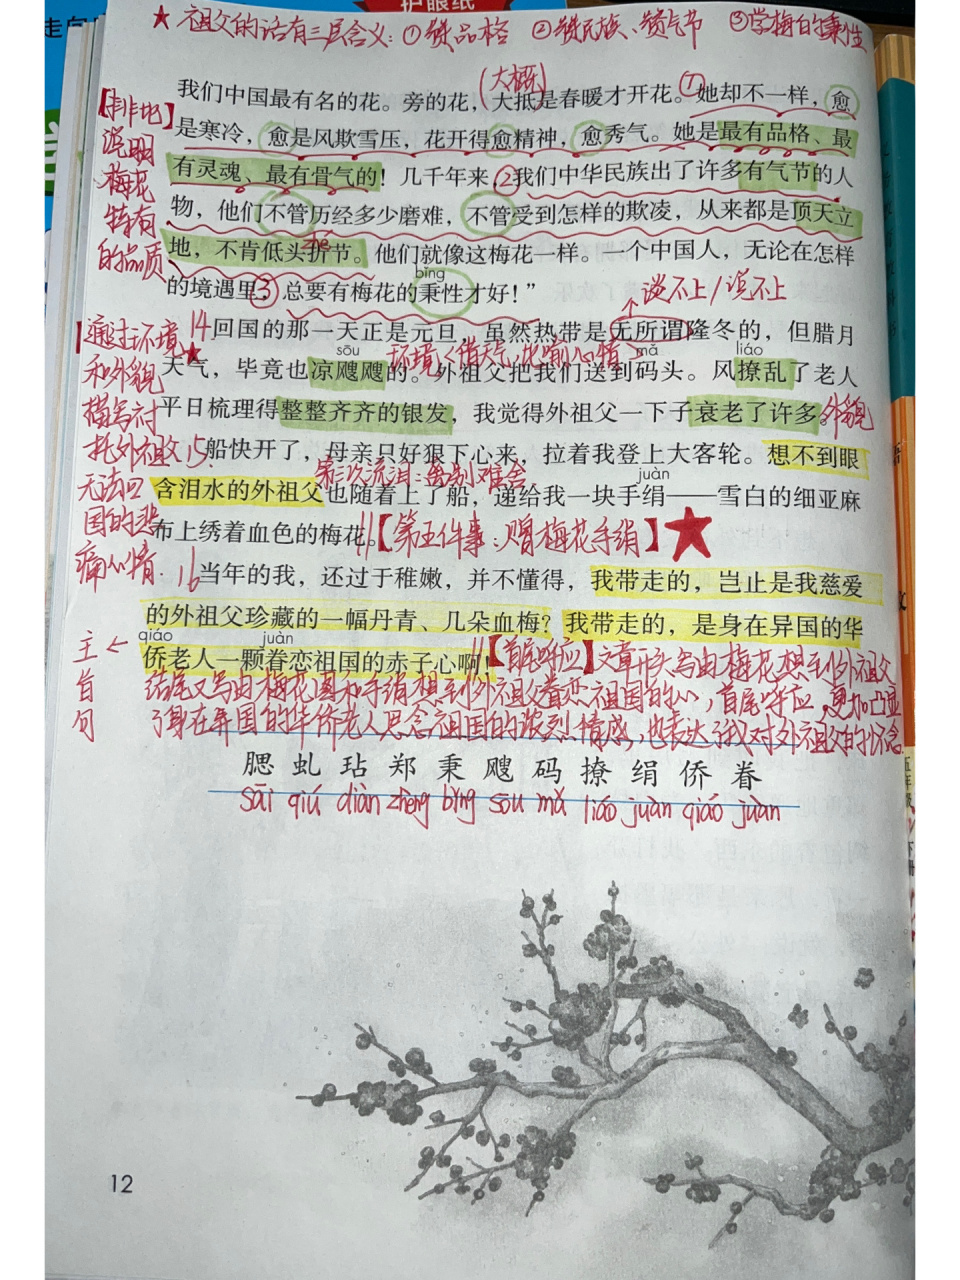 护眼纸
走向
★祖父的话有三层含义：①赞品格 ②赞民族、赞气节 ③学梅的秉性
(大概)
我们中国最有名的花。旁的花，大抵是春暖才开花。①她却不一样，愈
是寒冷，愈是风欺雪压，花开得愈精神，愈秀气。她是最有品格、最
有灵魂、最有骨气的！几千年来，②我们中华民族出了许多有气节的人
物，他们不管历经多少磨难，不管受到怎样的欺凌，从来都是顶天立
地，不肯低头折节。他们就像这梅花一样。一个中国人，无论在怎样
zhé
bǐng
的境遇里，③总要有梅花的秉性才好！”
【排比】
说明
梅花
特有
的品质
谈不上/说不上
14 回国的那一天正是元旦，虽然热带是无所谓隆冬的，但腊月
sōu mǎ liáo
天气，毕竟也凉飕飕的。外祖父把我们送到码头。风撩乱了老人
平日梳理得整整齐齐的银发，我觉得外祖父一下子衰老了许多。
外貌
通过环境
和外貌
描写衬
托外祖父
无法回
国的悲
痛心情
15 船快开了，母亲只好狠下心来，拉着我登上大客轮。想不到眼
juàn
含泪水的外祖父也随着上了船，递给我一块手绢——雪白的细亚麻
布上绣着血色的梅花。
【第五件事：赠梅花手绢】★
16 当年的我，还过于稚嫩，并不懂得，我带走的，岂止是我慈爱
的外祖父珍藏的一幅丹青、几朵血梅？我带走的，是身在异国的华
qiáo juàn
侨老人一颗眷恋祖国的赤子心啊！
主旨句
【首尾呼应】文章开头写由梅花想到外祖父
结尾又写由梅花图和手绢想到外祖父眷恋祖国的心，首尾呼应，更加凸显
了身在异国的华侨老人思念祖国的浓烈情感，也表达了我对外祖父的怀念。
腮 虬 玷 郑 秉 飕 码 撩 绢 侨 眷
sāi qiú diàn zhèng bǐng sōu mǎ liáo juàn qiáo juàn
12